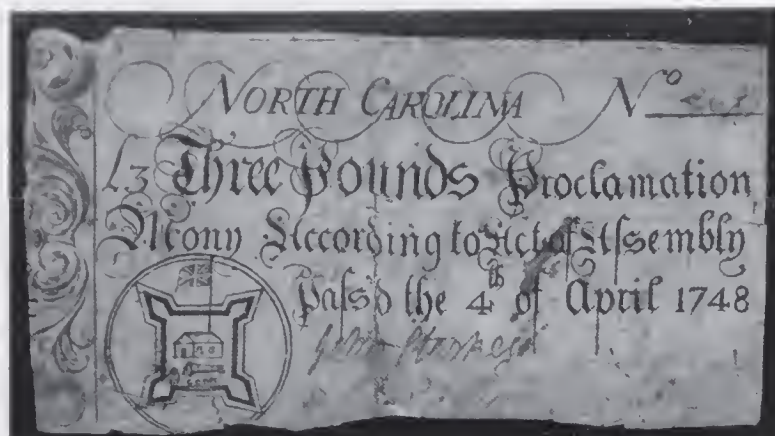 NORTH CAROLINA No
£3 Three Pounds Proclamation
Mony According to Act of Aſsembly
paſsd the 4th of April 1748
John